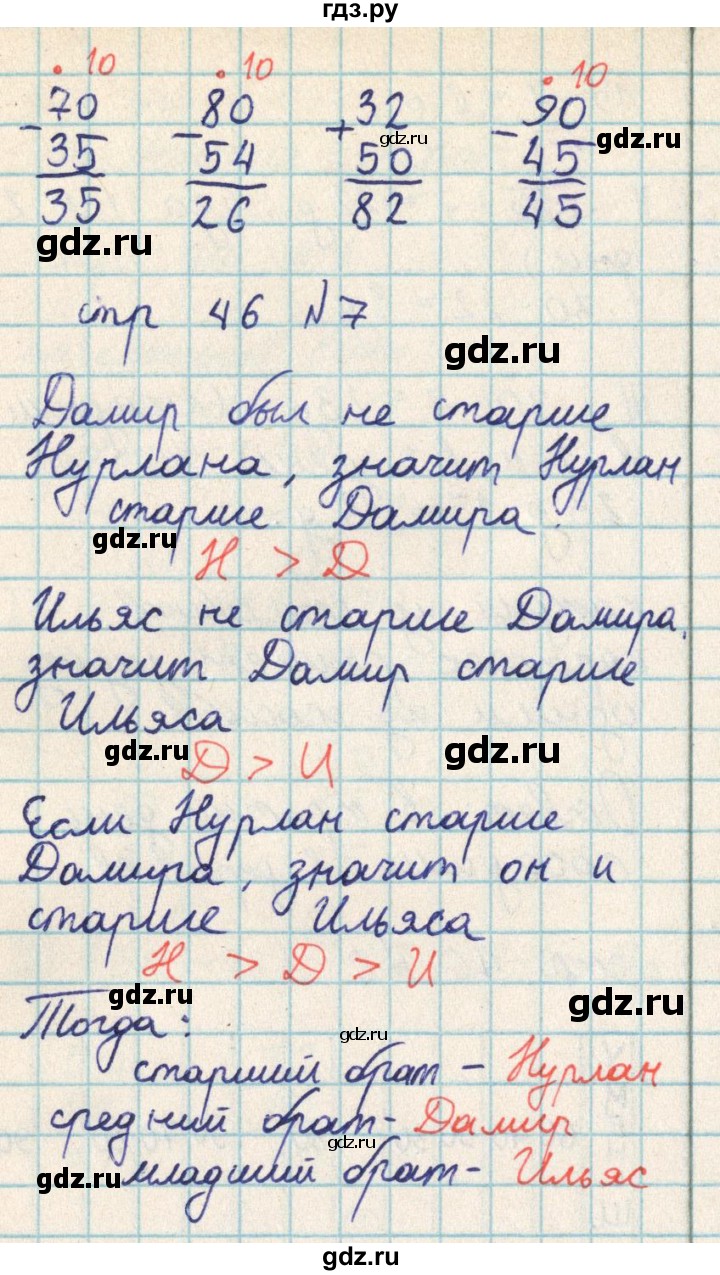 гдз.ру
. 10 . 10 . 10
70 80 32 90
- 35 - 54 + 50 - 45
35 26 82 45
gdz.ru
gdz.ru
gdz.ru
стр 46 №7
gdz.ru
Дамир был не старше
Нурлана, значит Нурлан
старше Дамира.
gdz.ru
Н > Д
Ильяс не старше Дамира,
значит Дамир старше
Ильяса
gdz.ru
gdz.ru
Д > И
Если Нурлан старше
Дамира, значит он и
старше Ильяса
Н > Д > И
gdz.ru
gdz.ru
Тогда:
gdz.ru
старший брат - Нурлан
средний брат - Дамир
gdz.ru
младший брат - Ильяс
gdz.ru
gdz.ru